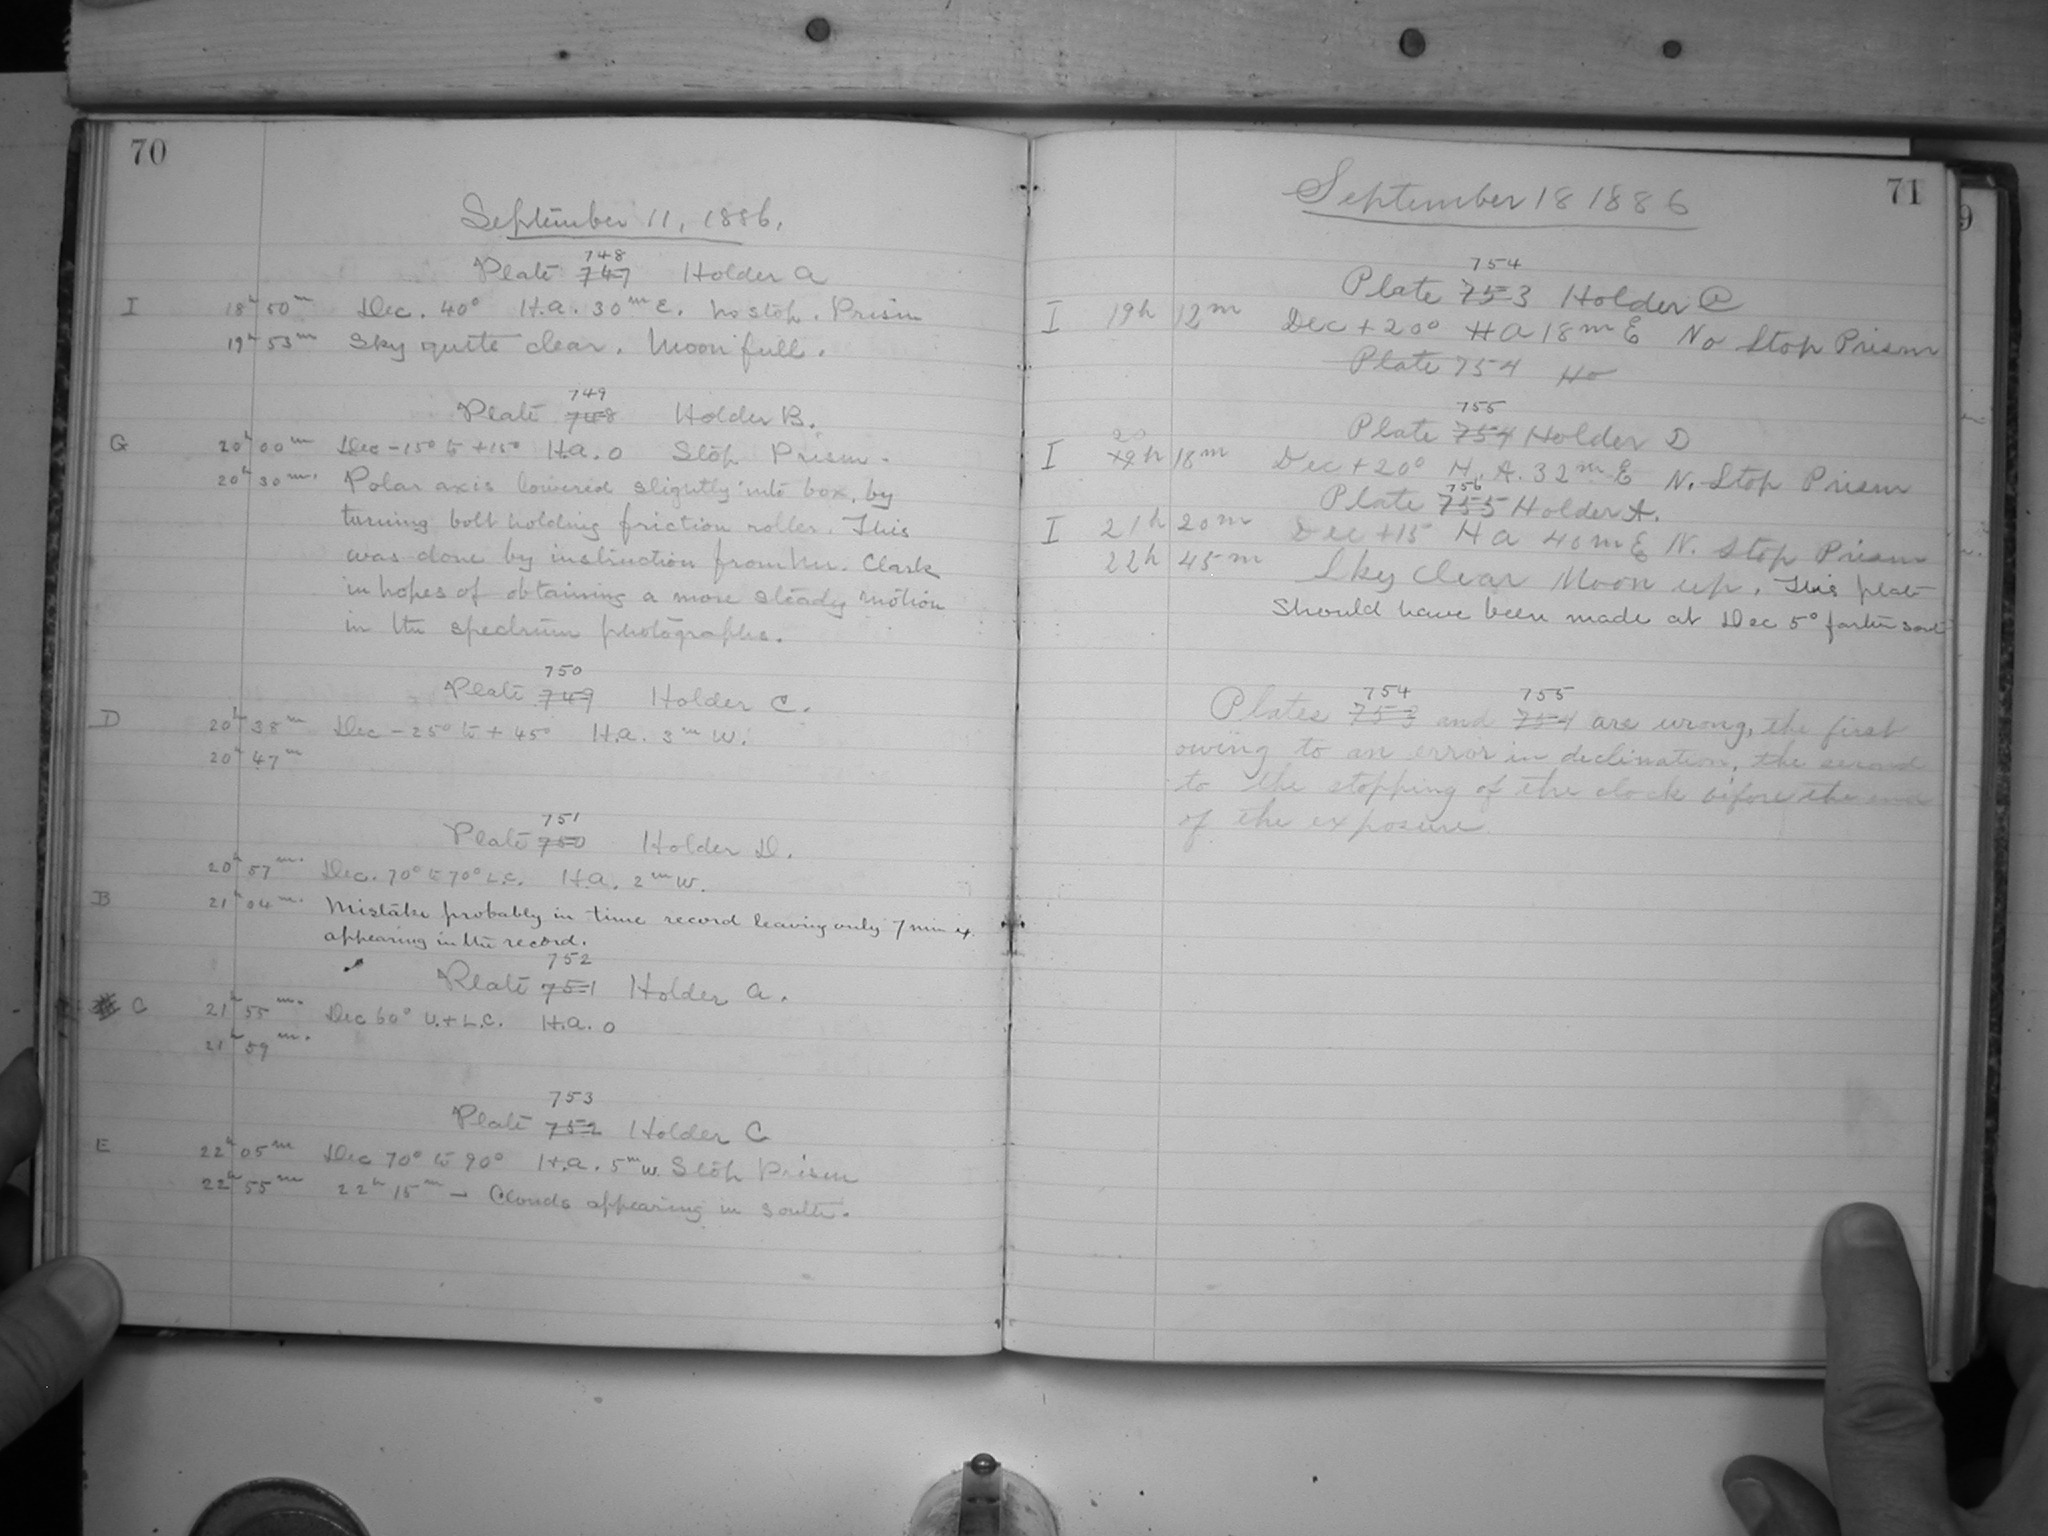 70
September 11, 1886.
748
Plate 747 Holder A
I 18h 50m Dec. 40° H.A. 30m E. No stop. Prism
19h 53m Sky quite clear. Moon full.
749
Plate 748 Holder B.
G 20h 00m Dec -15° to +15° H.A. 0 Stop Prism.
20h 30m. Polar axis lowered slightly into box, by
turning bolt holding friction roller. This
was done by instruction from Mr. Clark
in hopes of obtaining a more steady motion
in the spectrum photographs.
750
Plate 749 Holder C.
D 20h 38m Dec -25° to +45° H.A. 3m W.
20h 47m
751
Plate 750 Holder D.
20h 57m. Dec. 70° to 70° L.C. H.A. 2m W.
B 21h 04m. Mistake probably in time record leaving only 7 min ex.
appearing in the record.
752
Plate 751 Holder A.
C 21h 55m. Dec 60° U. + L.C. H.A. 0
21h 59m.
753
Plate 752 Holder C
E 22h 05m Dec 70° to 90° H.A. 5m W. Stop Prism
22h 55m 22h 15m — Clouds appearing in south.
71
September 18 1886
754
Plate 753 Holder C
I 19h 12m Dec + 20° HA 18m E No Stop Prism
Plate 754 Ho
755
Plate 754 Holder D
20
I 19h 18m Dec + 20° H. A. 32m E N. Stop Prism
756
Plate 755 Holder A.
I 21h 20m Dec +15 HA 40m E N. Stop Prism
22h 45m Sky Clear Moon up. This plate
should have been made at Dec 5° farther south
754 755
Plates 753 and 754 are wrong, the first
owing to an error in declination, the second
to the stopping of the clock before the end
of the exposure.